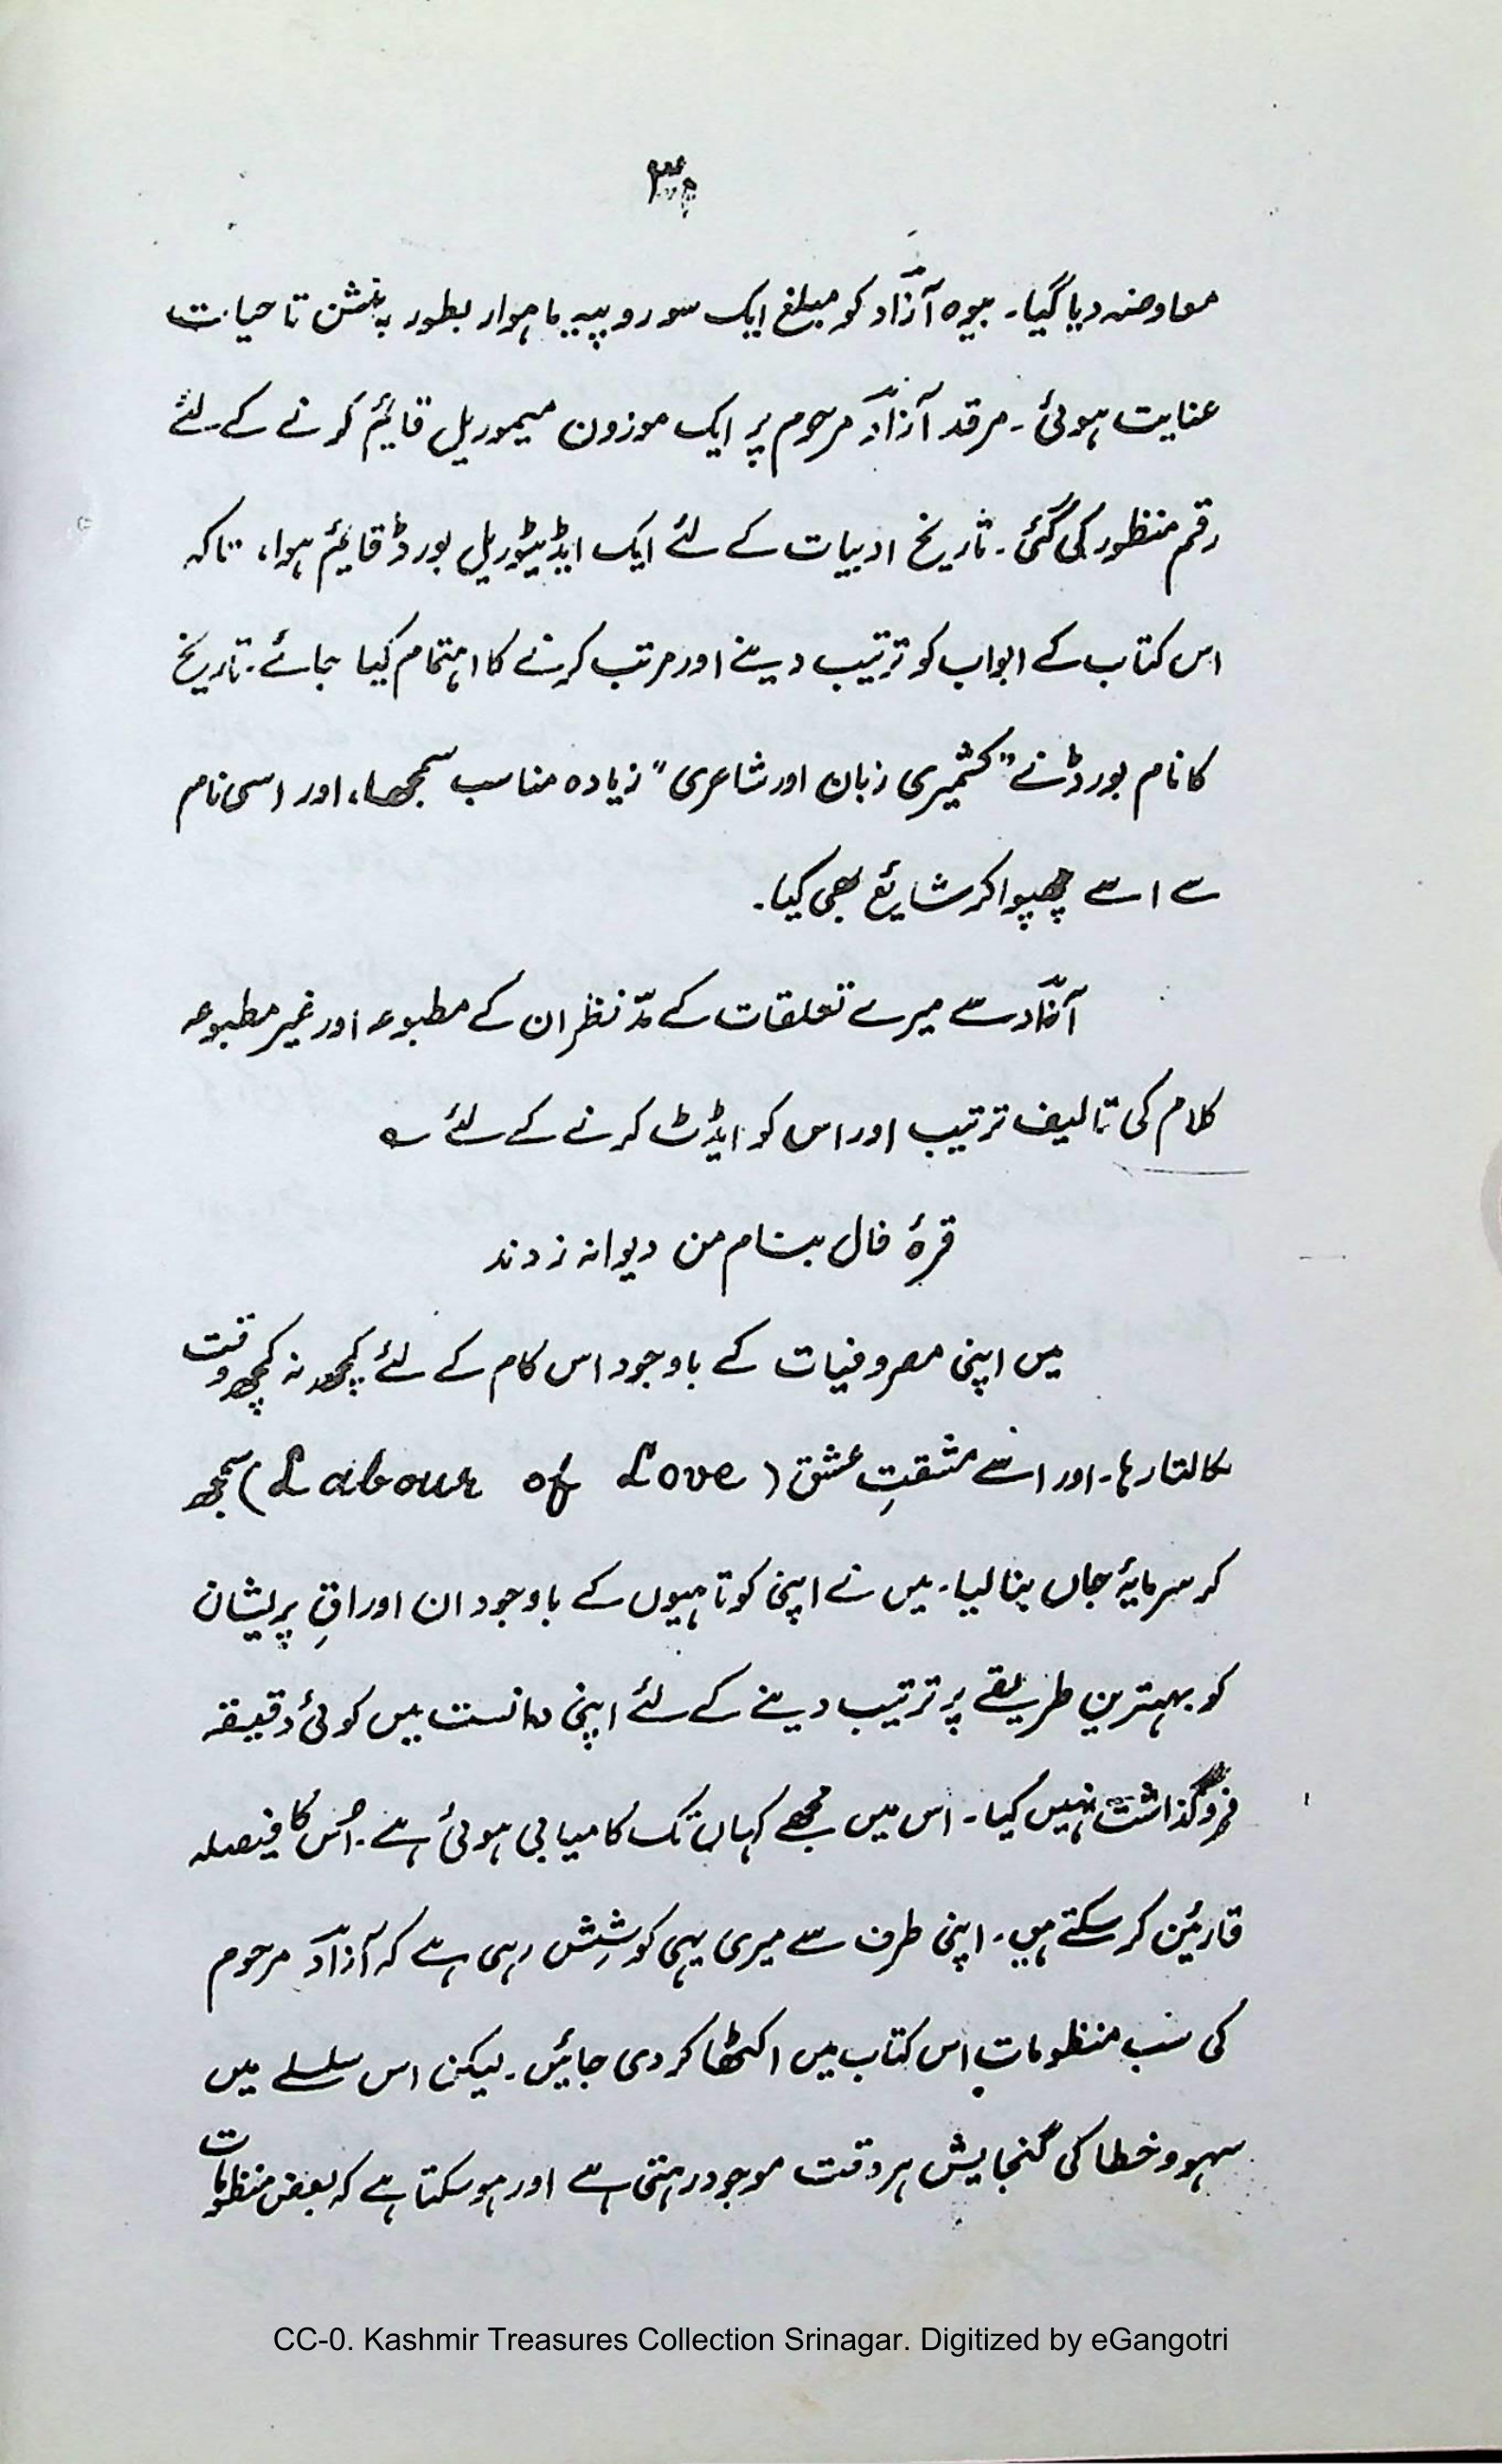 معاوضہ دیا گیا۔ بیوہ آزادؔ کو مبلغ ایک سو روپیہ ماہوار بطور پنشن تا حیات
عنایت ہوئی۔ مرقد آزادؔ مرحوم پر ایک موزون میموریل قایٔم کرنے کے لئے
رقم منظور کی گئی۔ تاریخ ادبیات کے لئے ایک ایڈیٹوریل بورڈ قایٔم ہوا، تاکہ
اس کتاب کے ابواب کو ترتیب دینے اور مرتب کرنے کا اہتمام کیا جائے۔ تاریخ
کا نام بورڈ نے "کشمیری زبان اور شاعری" زیادہ مناسب سمجھا، اور اسی نام
سے اسے چھپوا کر شایٔع بھی کیا۔
آزادؔ سے میرے تعلقات کے مدِّ نظر ان کے مطبوعہ اور غیر مطبوعہ
کلام کی تالیف ترتیب اور اس کو ایڈٹ کرنے کے لئے ؎
قرۂ فال بنام من دیوانہ زدند
میں اپنی مصروفیات کے باوجود اس کام کے لئے کچھ نہ کچھ وقت
نکالتا رہا۔ اور اسے مشقتِ عشق (Labour of Love) سمجھ
کر سرمایۂ جاں بنا لیا۔ میں نے اپنی کوتاہیوں کے باوجود ان اوراقِ پریشان
کو بہترین طریقے پر ترتیب دینے کے لئے اپنی دانست میں کوئی دقیقہ
فروگذاشت نہیں کیا۔ اس میں مجھے کہاں تک کامیابی ہوئی ہے۔ اُس کا فیصلہ
قاریٔن کر سکتے ہیں۔ اپنی طرف سے میری یہی کوشِش رہی ہے کہ آزادؔ مرحوم
کی سب منظومات اس کتاب میں اکٹھا کر دی جائیں۔ لیکن اس سلسلے میں
سہو و خطا کی گنجایش ہر وقت موجود رہتی ہے اور ہو سکتا ہے کہ بعض منظومات
CC-0. Kashmir Treasures Collection Srinagar. Digitized by eGangotri